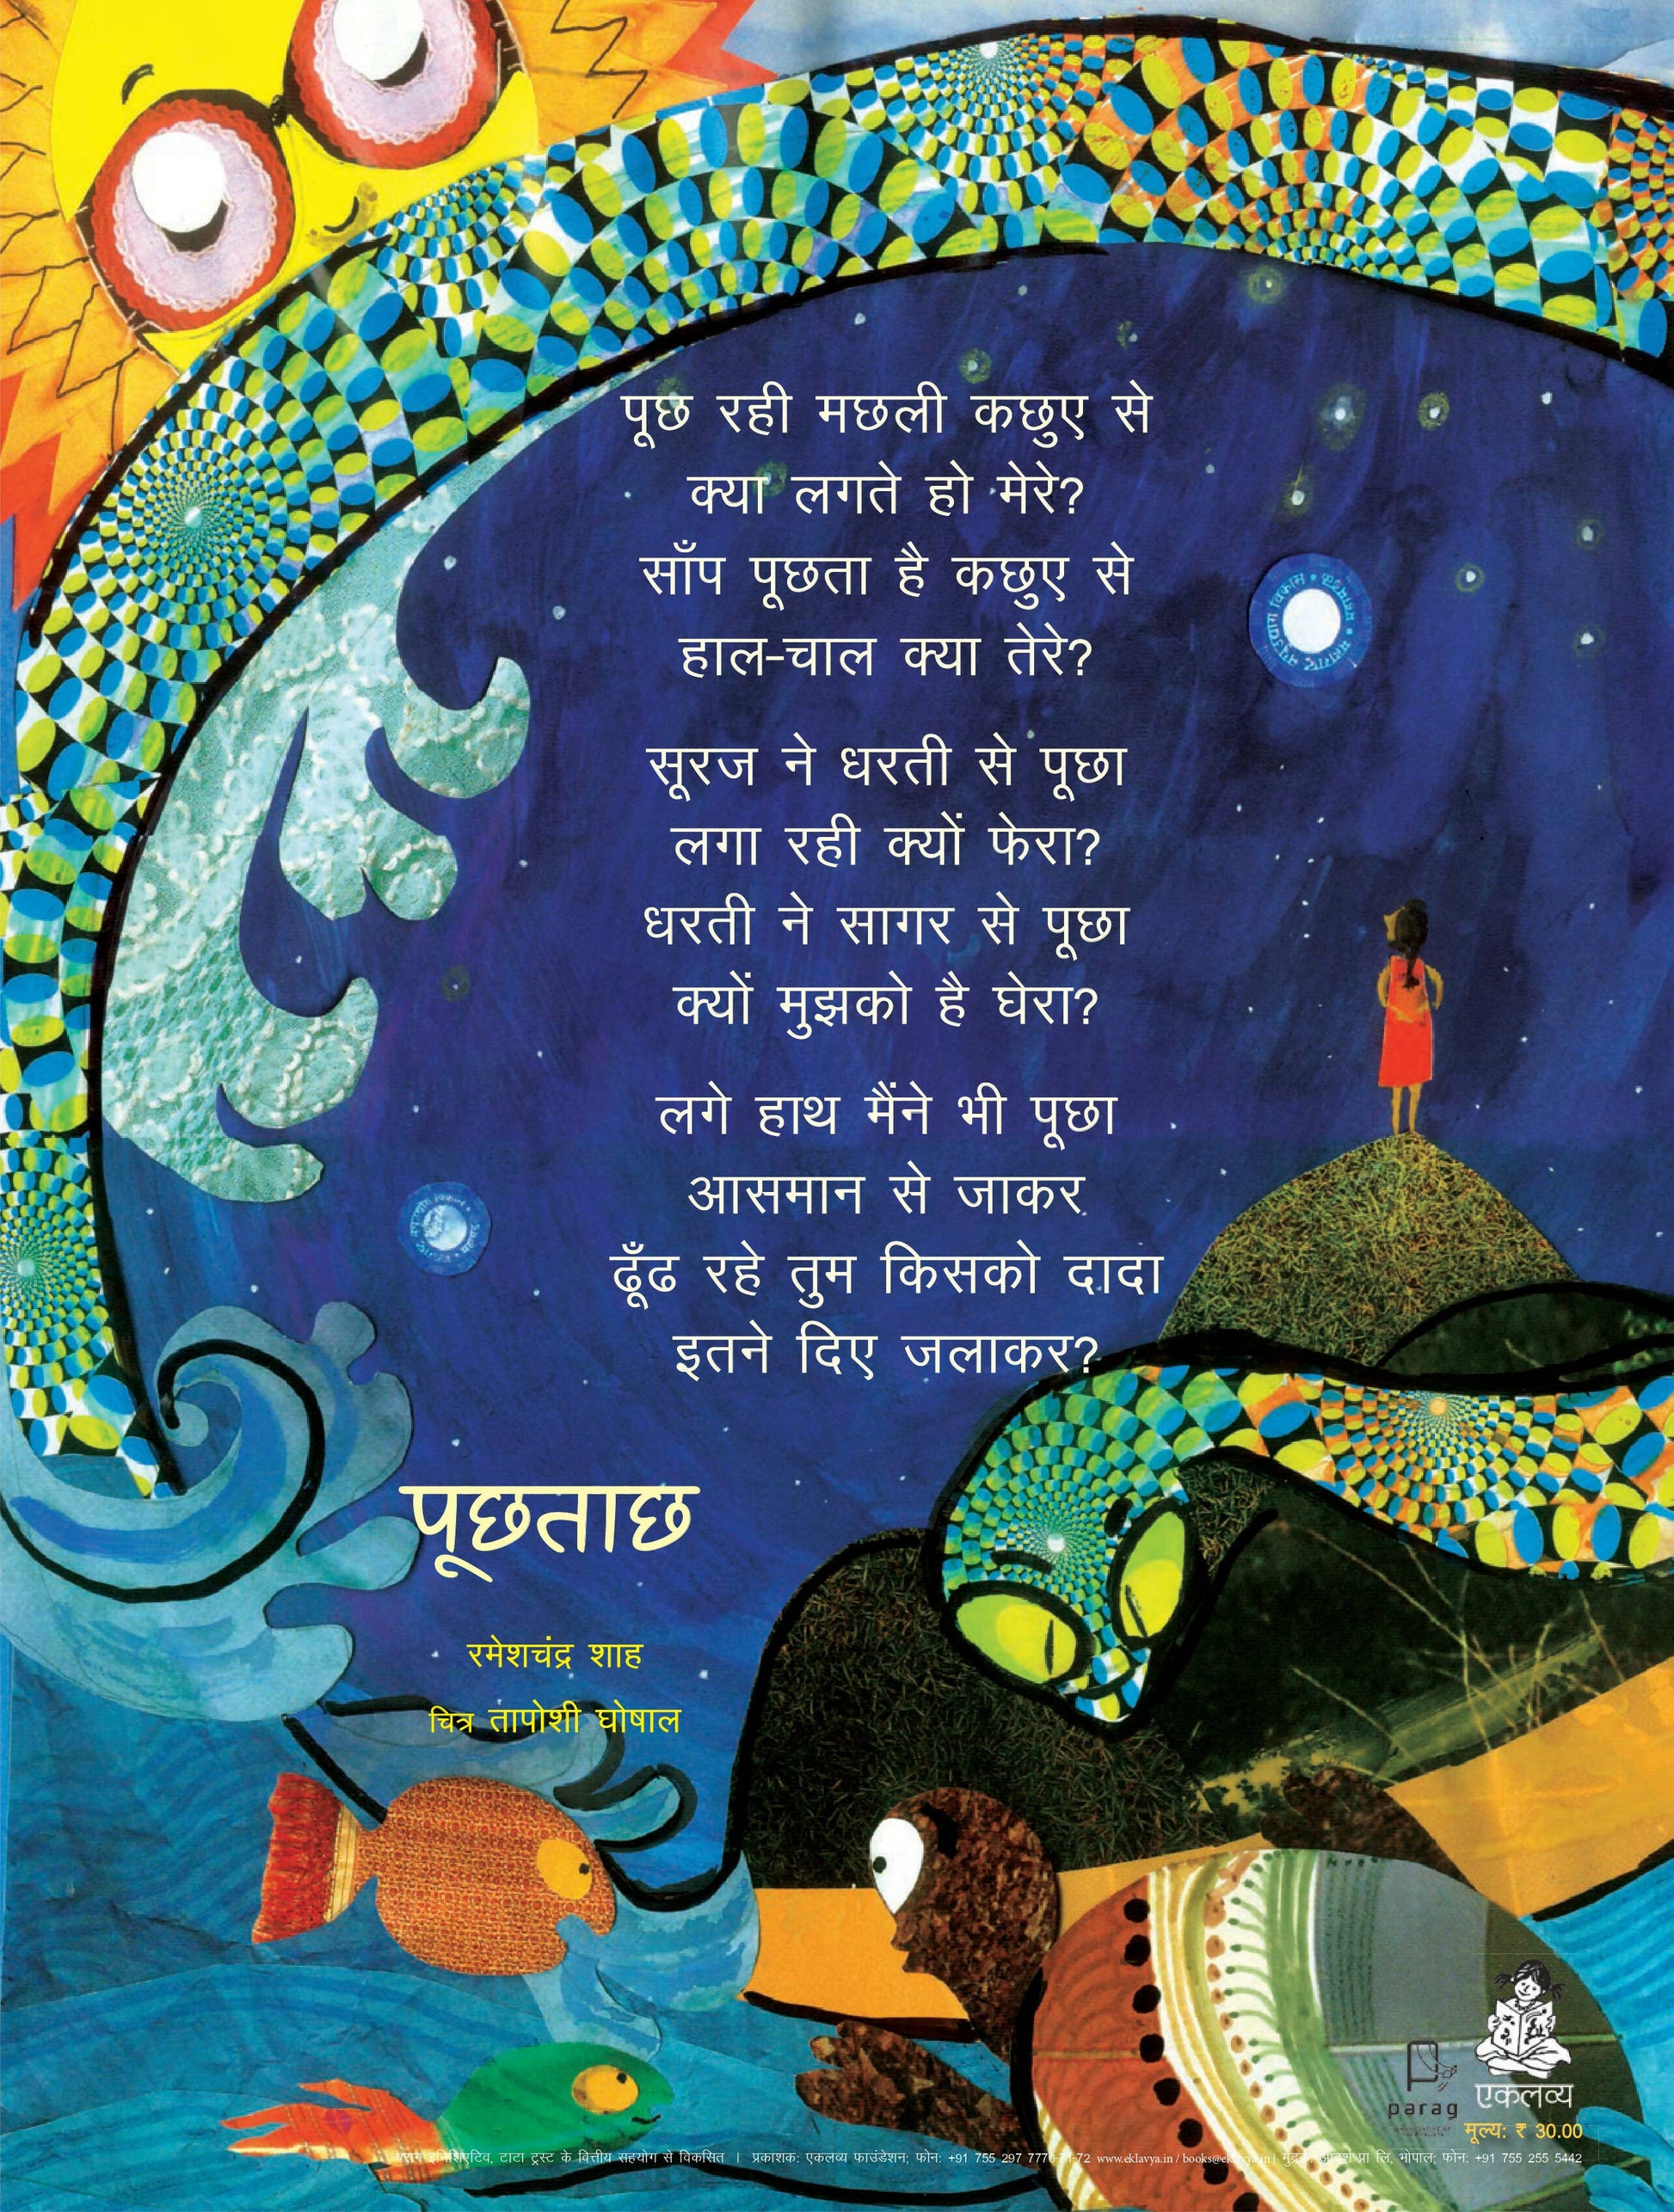 पूछ रही मछली कछुए से
क्या लगते हो मेरे?
साँप पूछता है कछुए से
हाल-चाल क्या तेरे?
सूरज ने धरती से पूछा
लगा रही क्यों फेरा?
धरती ने सागर से पूछा
क्यों मुझको है घेरा?
लगे हाथ मैंने भी पूछा
आसमान से जाकर
ढूँढ रहे तुम किसको दादा
इतने दिए जलाकर?
पूछताछ
रमेशचंद्र शाह
चित्र तापोशी घोषाल
parag
एकलव्य
मूल्य: ₹ 30.00
पराग इनिशिएटिव, टाटा ट्रस्ट के वित्तीय सहयोग से विकसित । प्रकाशक: एकलव्य फाउंडेशन; फोन: +91 755 297 7770-71-72 www.eklavya.in / books@eklavya.in | मुद्रक: आदर्श प्रा लि, भोपाल; फोन: +91 755 255 5442